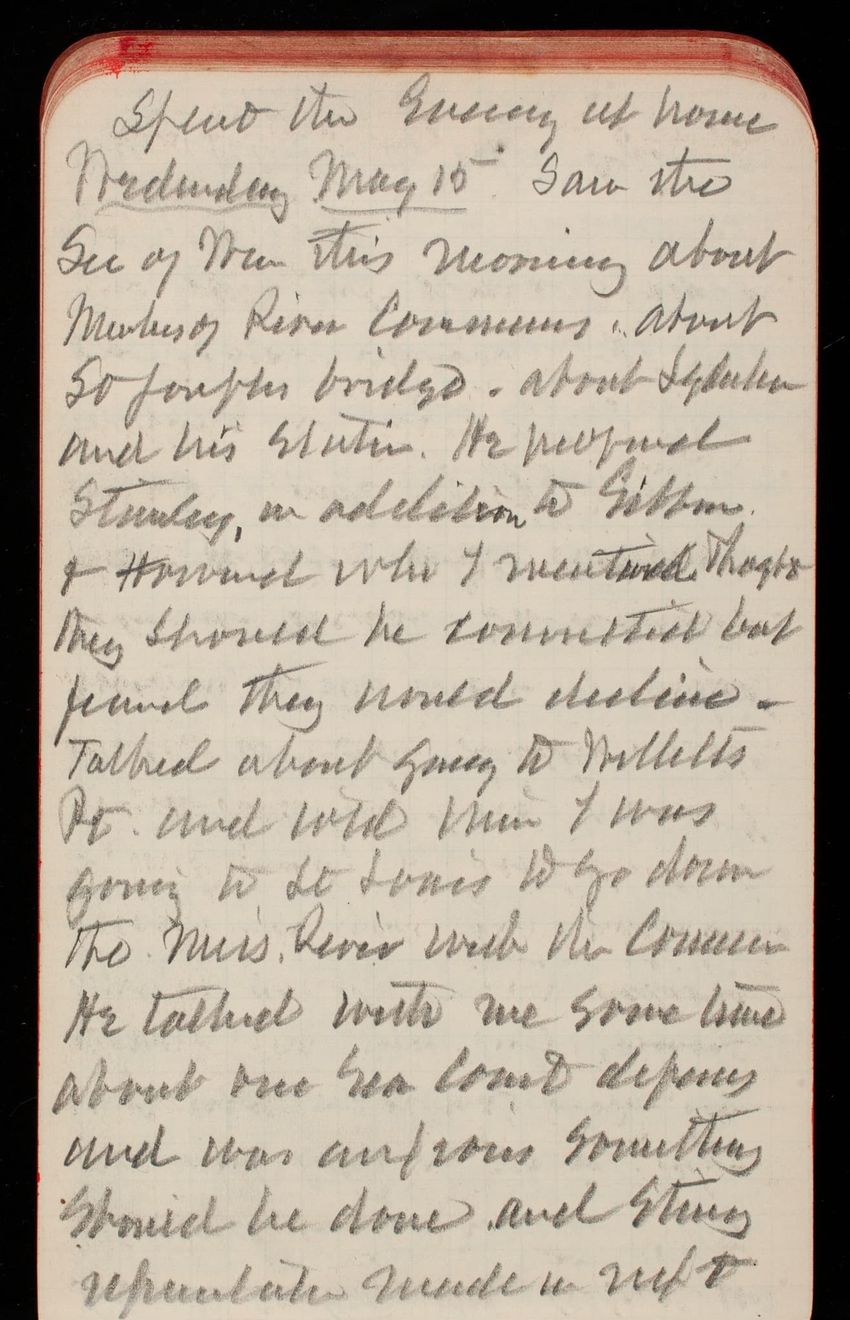 Spent the Evening at home
Wednesday May 15 Saw the
Sec of War this morning about
Members of River Commns, about
St Josephs bridge. about
and his Statue. He proposed
Stanley, in addition to Gibbon
& Howard who I mentioned. Thought
they should be committed but
feared they would decline.
Talked about going to Willetts
Pt. and told him I was
going to St Louis to go down
the Miss. River with the Commn
He talked with me some time
about our Sea Coast defenses
and was anxious something
should be done and strong
made in